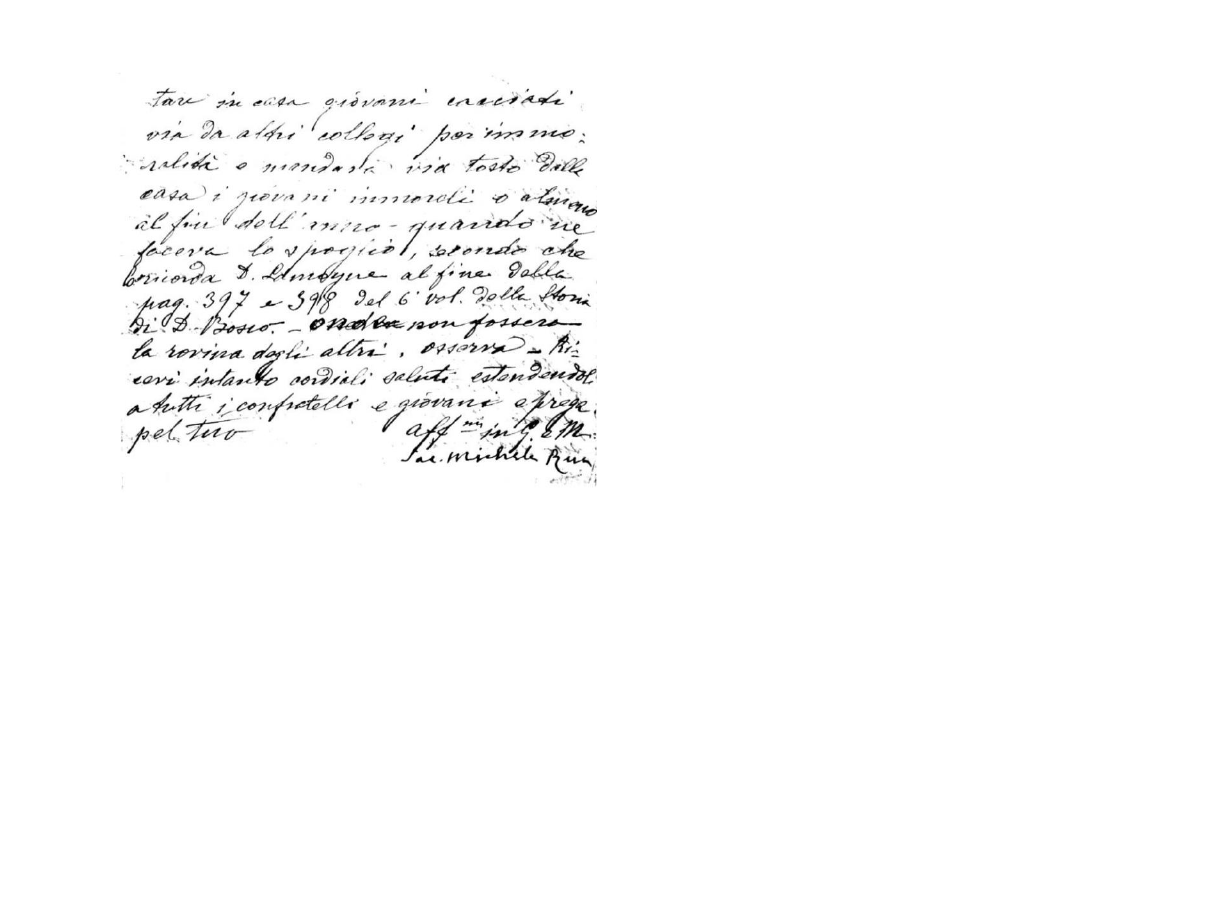 tare in casa giovani cacciati
via da altri collegi per immo-
ralità e mandava via tosto dalla
casa i giovani immorali o almeno
al fin dell'anno - quando ne
faceva lo spoglio, secondo che
ricorda D. Lemoyne al fine della
pag. 397 e 398 del 6 vol. della Storia
di D. Bosco. - non fossero
la rovina degli altri, osserva - Ri-
cevi intanto cordiali saluti estendendoli
a tutti i confratelli e giovani e prega
pel tuo
aff.mo in G. e M.
Sac. Michele Rua